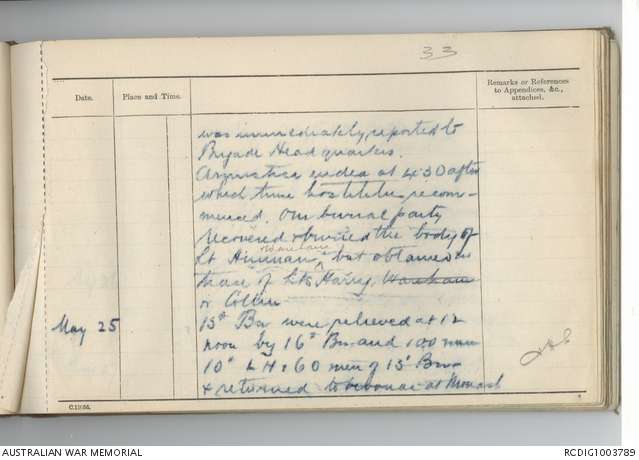 33
Date.
Place and Time.
Remarks or References
to Appendices, &c.,
attached.
was immediately reported to
Brigade Head quarters.
Armistice ended at 4.30 after
which time hostilities recom-
menced. Our burial party
recovered & buried the body of
Lt Hinman, but obtained
those of Lts Harvey, Wareham
or Collin
May 25
15th Bn were relieved at 12
noon by 16th Bn and 100 men
10th LH & 60 men of 13th Bn
& returned to bivouac at Monash
C.13656.
AUSTRALIAN WAR MEMORIAL
RCDIG1003789